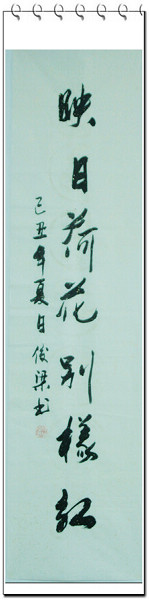 映日荷花别樣红
己丑年夏日俊梁书